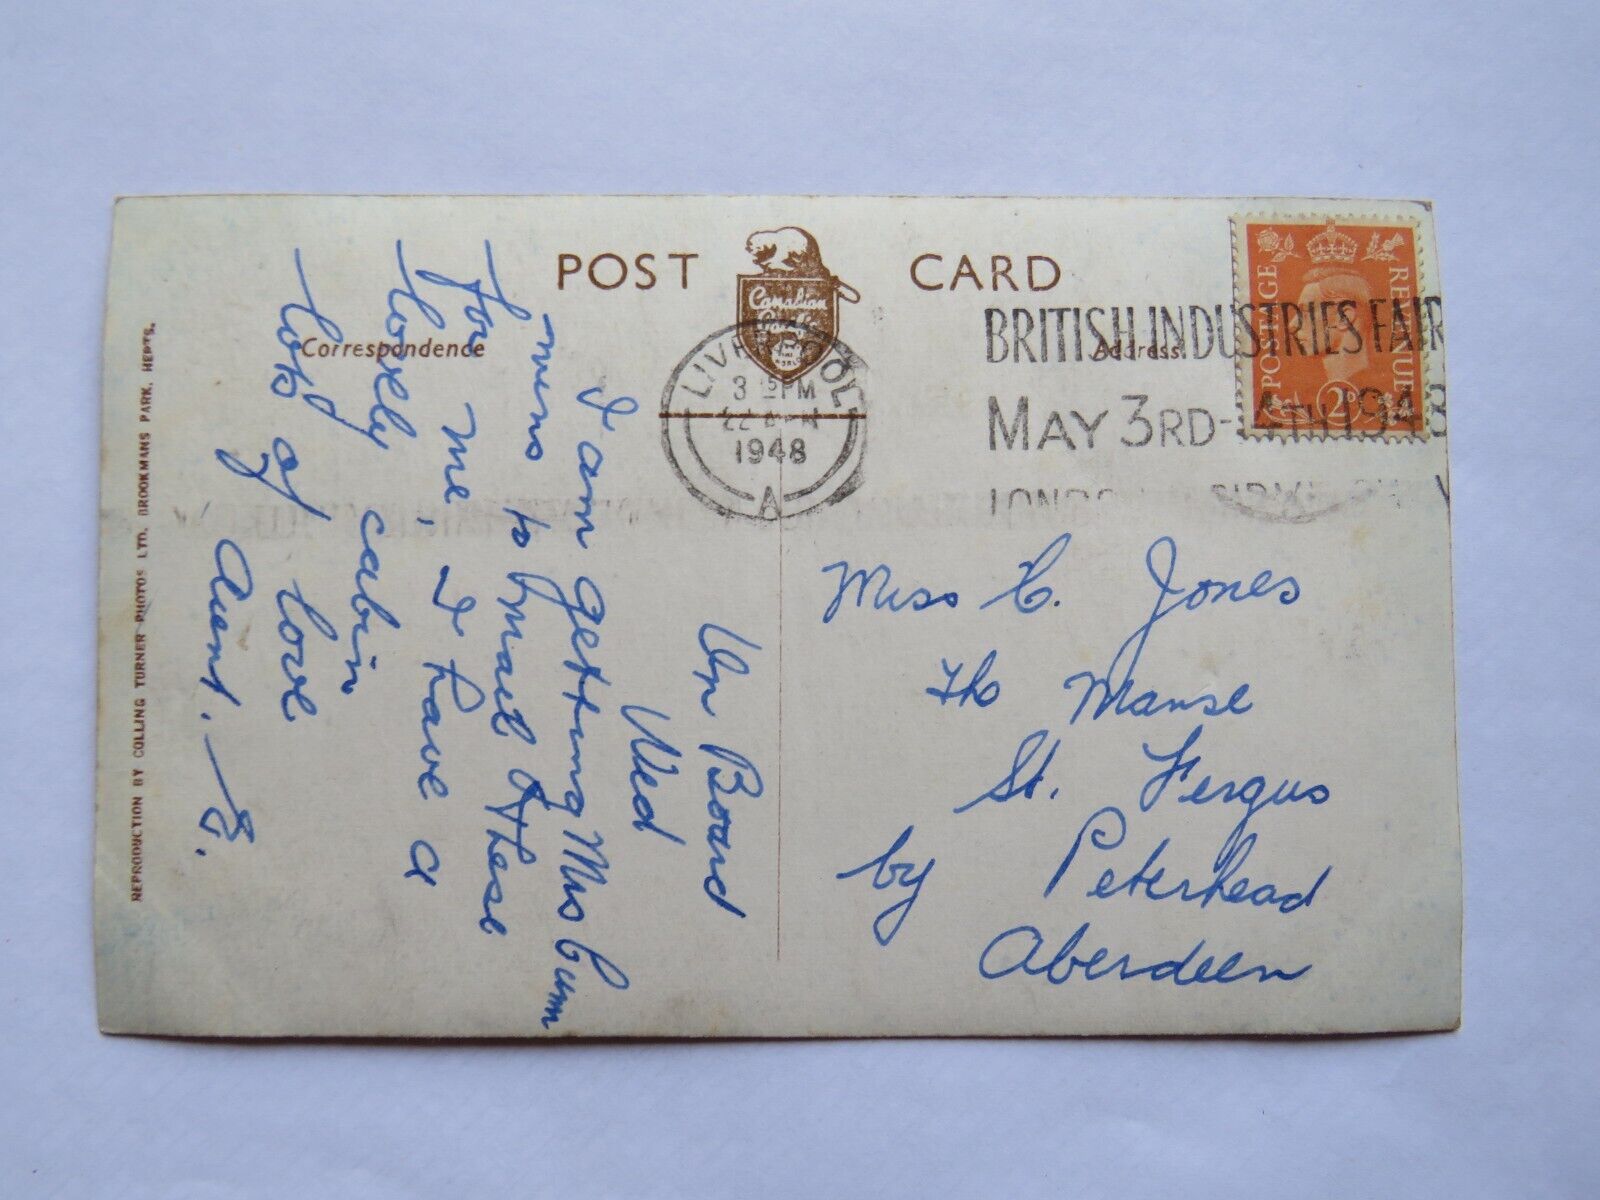 POST CARD
Canadian
Pacific
Correspondence
Address
LIVERPOOL
3 15 PM
22 APR
1948
A
BRITISH INDUSTRIES FAIR
MAY 3RD-14TH 1948
LONDON
POSTAGE
REVENUE
2D
On Board
Wed
I am getting Mrs Cumm
-mens to mail these
for me, I have a
lovely cabin
lots of love
Aunt. E.
Miss C. Jones
The Manse
St. Fergus
by Peterhead
Aberdeen
REPRODUCTION BY COLLING TURNER PHOTOS LTD. BROOKMANS PARK, HERTS.